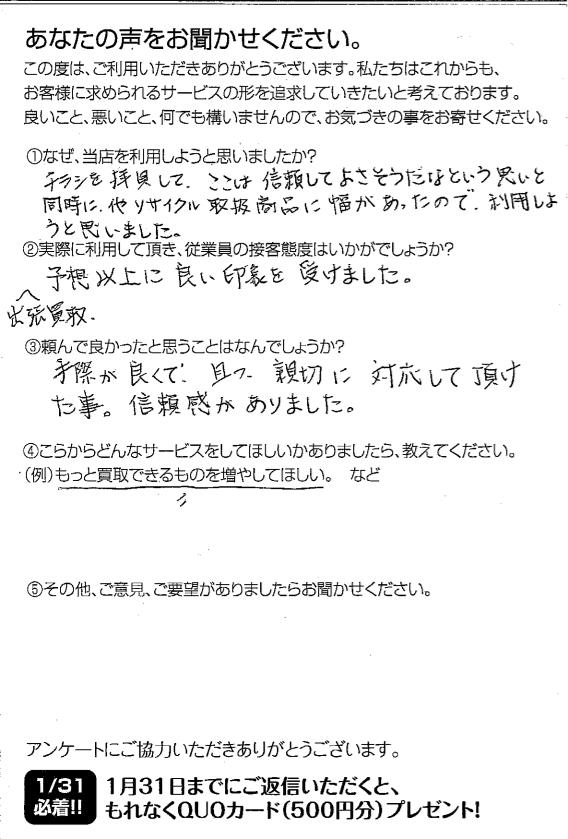 あなたの声をお聞かせください。
この度は、ご利用いただきありがとうございます。私たちはこれからも、
お客様に求められるサービスの形を追求していきたいと考えております。
良いこと、悪いこと、何でも構いませんので、お気づきの事をお寄せください。
①なぜ、当店を利用しようと思いましたか?
チラシを拝見して、ここは信頼してよさそうだなという思いと
同時に、他リサイクル取扱商品に幅があったので、利用しよ
うと思いました。
②実際に利用して頂き、従業員の接客態度はいかがでしょうか?
予想以上に良い印象を受けました。
出張買取.
③頼んで良かったと思うことはなんでしょうか?
手際が良くて、且つ 親切に 対応して頂け
た事。信頼感がありました。
④こらからどんなサービスをしてほしいかありましたら、教えてください。
(例)もっと買取できるものを増やしてほしい。 など
⑤その他、ご意見、ご要望がありましたらお聞かせください。
アンケートにご協力いただきありがとうございます。
1/31
必着!!
1月31日までにご返信いただくと、
もれなくQUOカード(500円分)プレゼント!